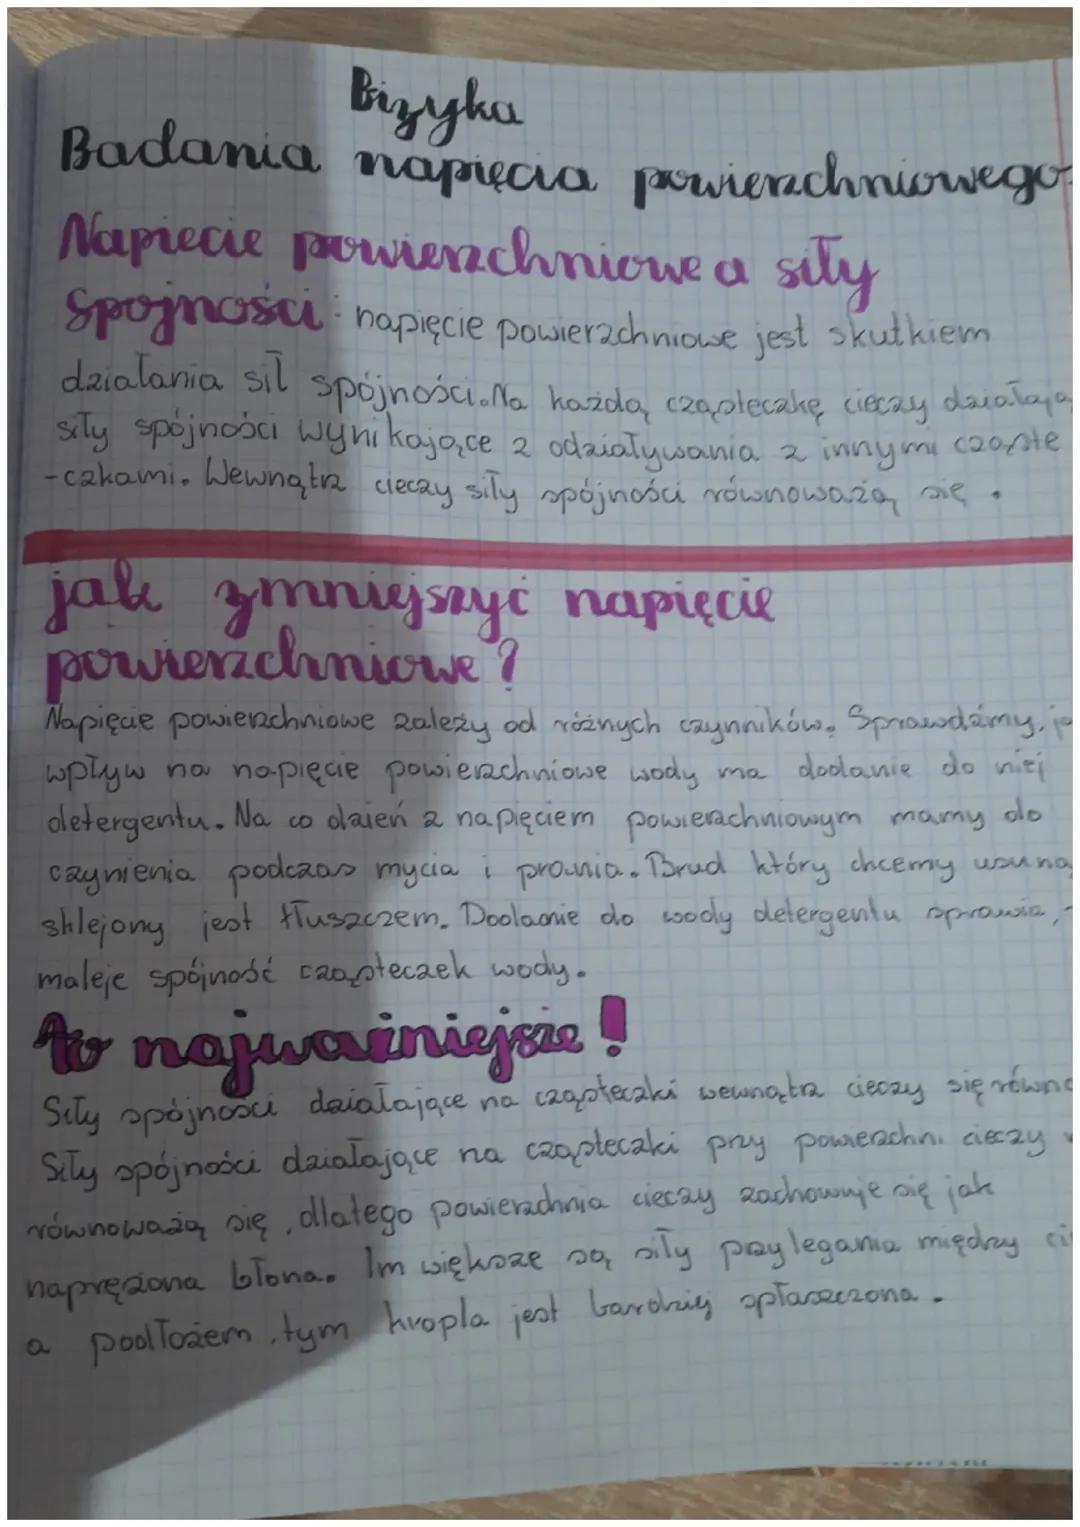 Bizyka
Badania napięcia powierzchniowego
Napiecie powierzchniowe a siły
Spojności: napięcie powierzchniowe jest skutkiem
działania sił spójności. Na każdą cząsteczkę cieczy działają
siły spójności wynikające z odziaływania z innymi cząste
-czkami. Wewnątrz cieczy siły spójności równoważą się.
jak zmniejszyć napięcie
powierzchniowe?
Napięcie powierzchniowe zależy od różnych czynników. Sprawdźmy, ja
wpływ na napięcie powierzchniowe wody ma dodanie do niej
detergentu. Na co dzień z napięciem powierzchniowym mamy do
czynienia podczas mycia i prania. Brud który chcemy usuną
sklejony jest tłuszczem. Dodanie do wody detergentu sprawia, -
maleje spójność cząsteczek wody.
to najważniejsze!
Siły spójności działające na cząsteczki wewnątrz cieczy się równo
Siły spójności działające na cząsteczki przy powierzchni cieczy
równoważą się, dlatego powierzchnia cieczy zachowuje się jak
naprężona błona. Im większe są siły przylegania między ci
a podłożem, tym kropla jest bardziej spłaszczona.